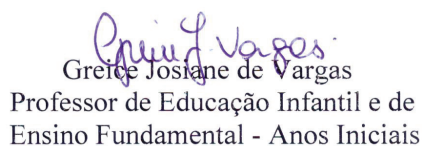 Greice J. Vargas
Greice Josiane de Vargas
Professor de Educação Infantil e de
Ensino Fundamental - Anos Iniciais